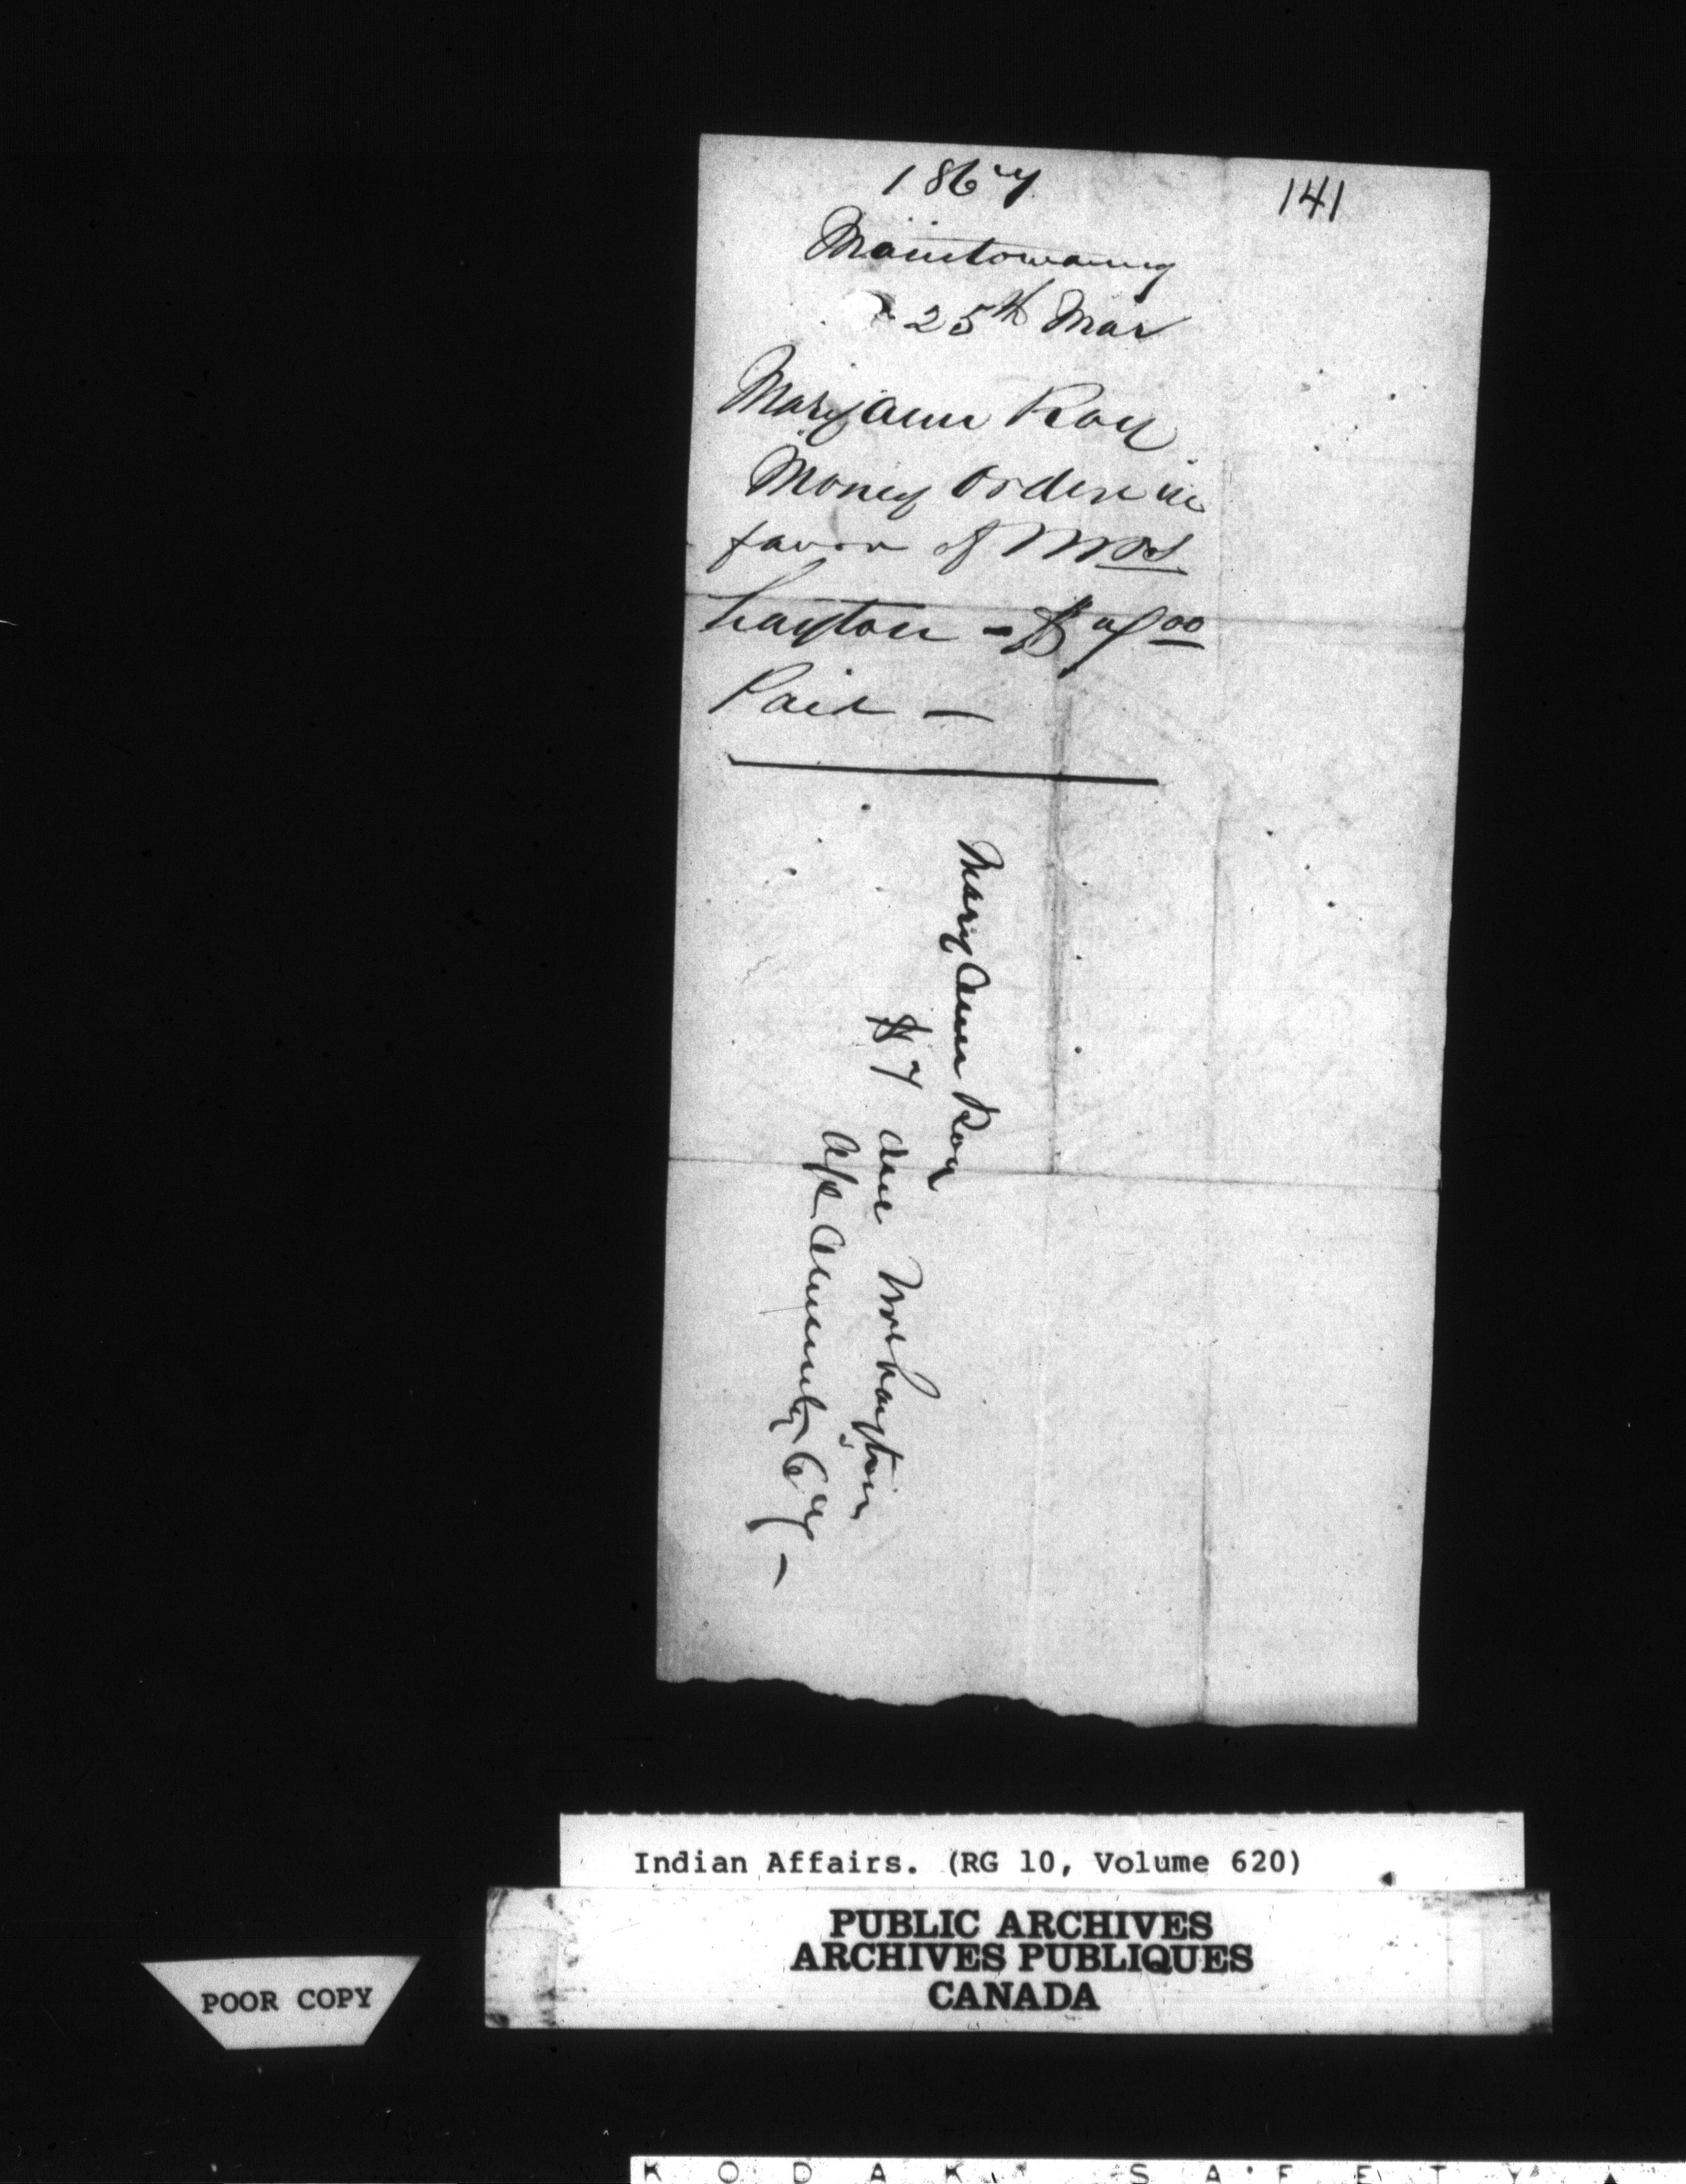 1867
141
Manitowaning
25th Mar
Mary Ann Roy
Money Order in
favor of Mrs
Layton - $7 00
Paid —
Mary Ann Roy
$7 due Mrs Layton
a/c Annuity 67 —
Indian Affairs. (RG 10, Volume 620)
PUBLIC ARCHIVES
ARCHIVES PUBLIQUES
CANADA
POOR COPY
KODAK SAFETY